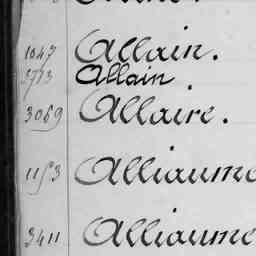 1047 Allain.
3773 Allain
3069 Allaire.
1153 Alliaume
3411 Alliaume